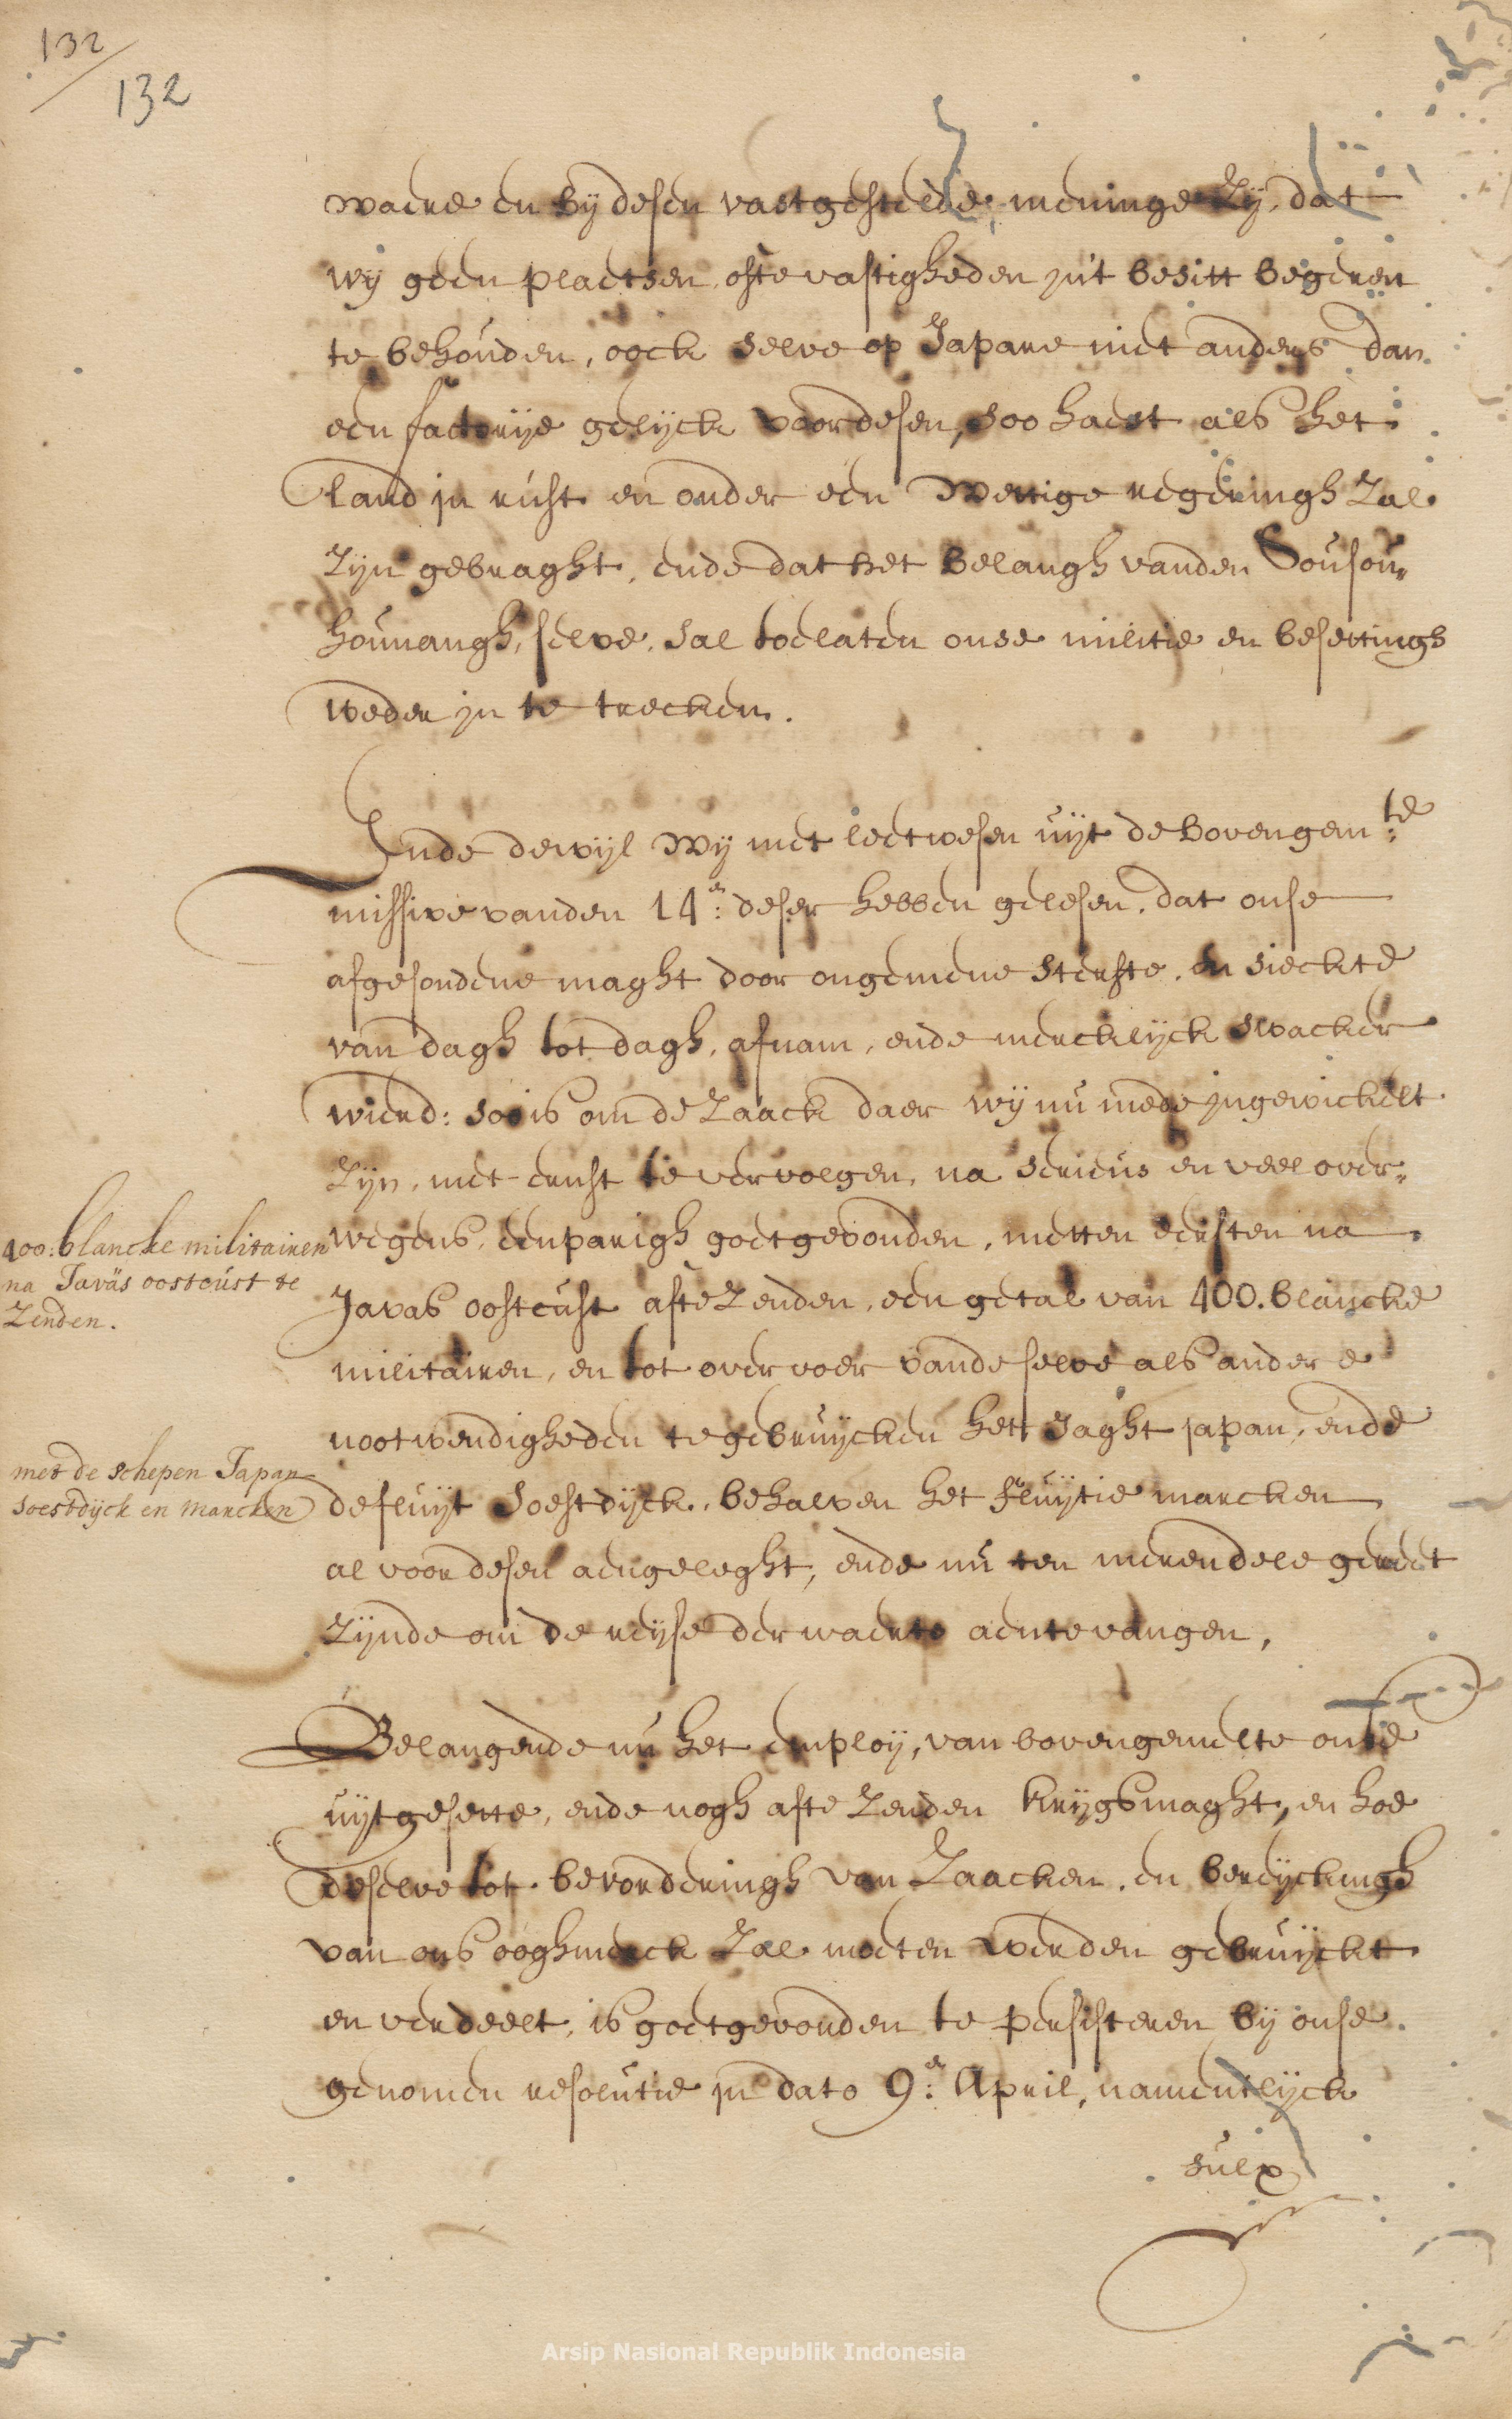 132
132
waere en bij desen vastgestelde meninge zij, dat
wij geen plaetsen ofte vastigheden jn't besitt begeren
te behouden, oock selve op Japare niet anders dan
een factorije gelijck voor desen, soo haest als het
land jn rust en onder een wettige regeringh zal
zijn gebraght, ende dat het belangh vanden Sousou„
hounangh, selve, sal toelaten onse militie en besettingh
weder jn te trecken.
Ende dewijl wij met leetwesen uijt de bovengem:te
missive vanden 14:en deser hebben gelesen, dat onse
afgesondene maght door ongemene sterfte, en sieckte
van dagh tot dagh, afnam, ende mercklijck swacker
wierd: soo is om de zaack daer wij nu mede jngewickelt
zijn, met ernst te vervolgen, na serieus en veel over„
wegens, eenparigh goetgevonden, metten eersten na
Javas oostcust afte zenden, een getal van 400. blancke
militairen, en tot overvoer van de selve als andere
nootwendigheden te gebruijcken het Jaght japan, ende
de fluijt Soestdijck, behalven het fluijtie marcken
al voor desen aengeleght, ende nu ten merendele gereet
zijnde om de reijse derwaerts aentevangen,
400: blancke militairen
na Javas oostcust te
zenden.
met de schepen Japan
soestdijck en marcken
Belangende nu het employ, van bovengemelte onse
uijtgesette, ende nogh afte zenden krijgsmaght, en hoe
deselve tot bevorderingh van zaacken, en bereijckingh
van ons ooghmerck zal moeten werden gebruijckt
en verdeelt, is goetgevonden te persisteren bij onse
genomen resolutie jn dato 9:en April, namentlijck
sulx
Arsip Nasional Republik Indonesia